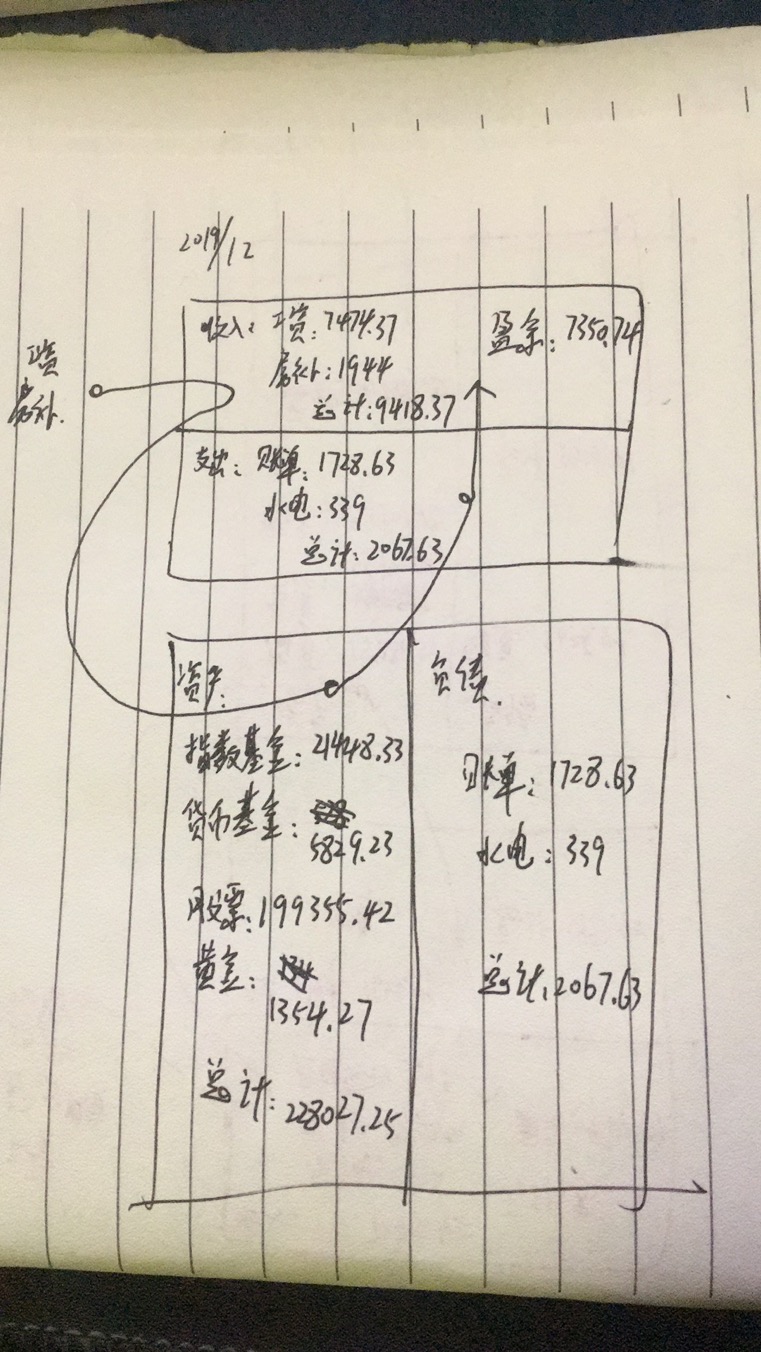 2019/12
收入: 工资: 7474.37
盈余: 7350.74
房补: 1944
总计: 9418.37
工资
房补.
支出: 账单: 1728.63
水电: 339
总计: 2067.63
资产:
指数基金: 21448.33
货币基金:
5829.23
股票: 199355.42
黄金:
1354.27
总计: 228027.25
负债.
账单: 1728.63
水电: 339
总计: 2067.63